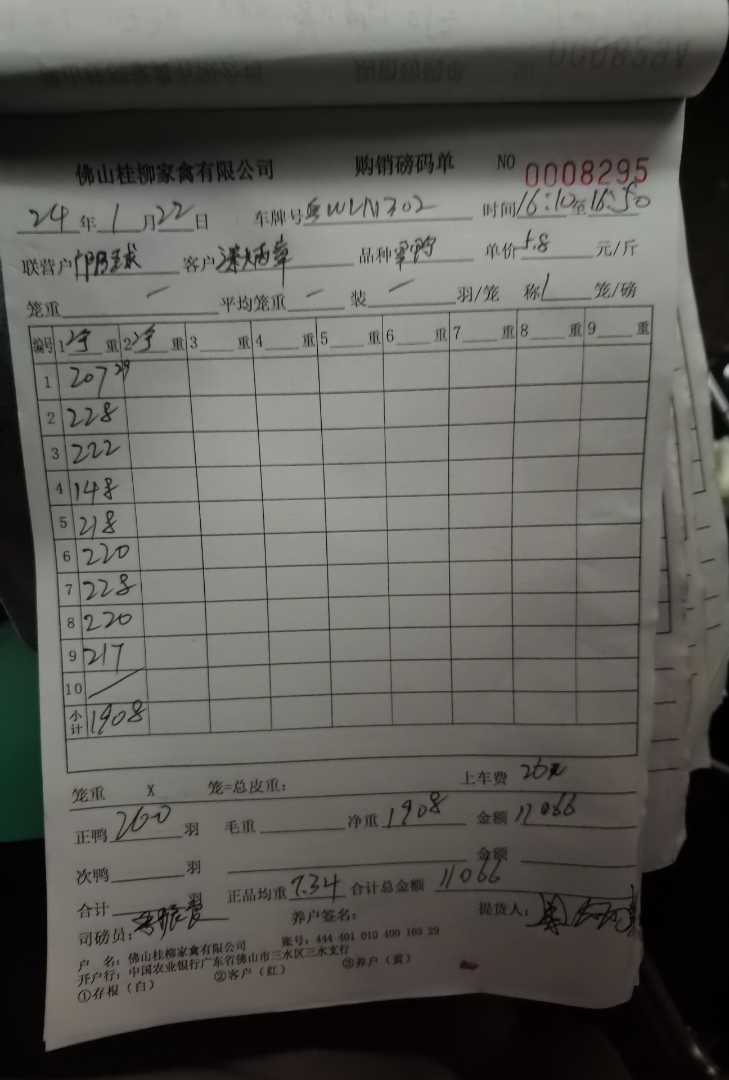 佛山桂柳家禽有限公司 购销磅码单 NO 0008295
24年1月22日 车牌号 WLN302 时间16:10至16:50
联营户 客户 品种 单价5.8元/斤
笼重 — 平均笼重 — 装 — 羽/笼 称1笼/磅
编号 1净重 2净重 3重 4重 5重 6重 7重 8重 9重
1 207 29
2 228
3 222
4 148
5 218
6 220
7 228
8 220
9 217
10 /
小计 1908
笼重 X 笼=总皮重： 上车费 26元
正鸭260羽 毛重 净重1908 金额11066
次鸭 羽 金额
合计 羽 正品均重7.34 合计总金额11066
司磅员： 养户签名： 提货人：
户 名：佛山桂柳家禽有限公司 账号：444 401 010 400 169 29
开户行：中国农业银行广东省佛山市三水区三水支行
①存根（白） ②客户（红） ③养户（黄）